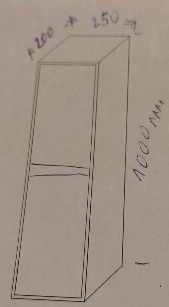 200
250
1000 mm